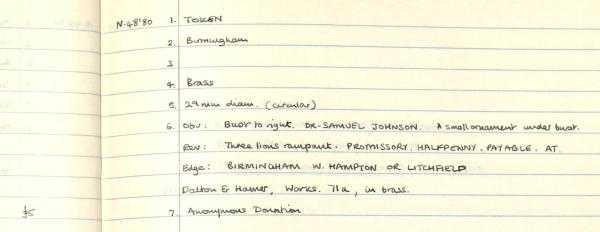 N.48'80 1. TOKEN
2. Birmingham
3
4. Brass
5. 29 mm diam. (circular)
6. Obv: Bust to right. DR. SAMUEL JOHNSON. A small ornament under bust.
Rev: Three lions rampant. PROMISSORY. HALFPENNY. PAYABLE. AT.
Edge: BIRMINGHAM W. HAMPTON OR LITCHFIELD
Dalton & Hamer, Works. 71a, in brass.
7. Anonymous Donation